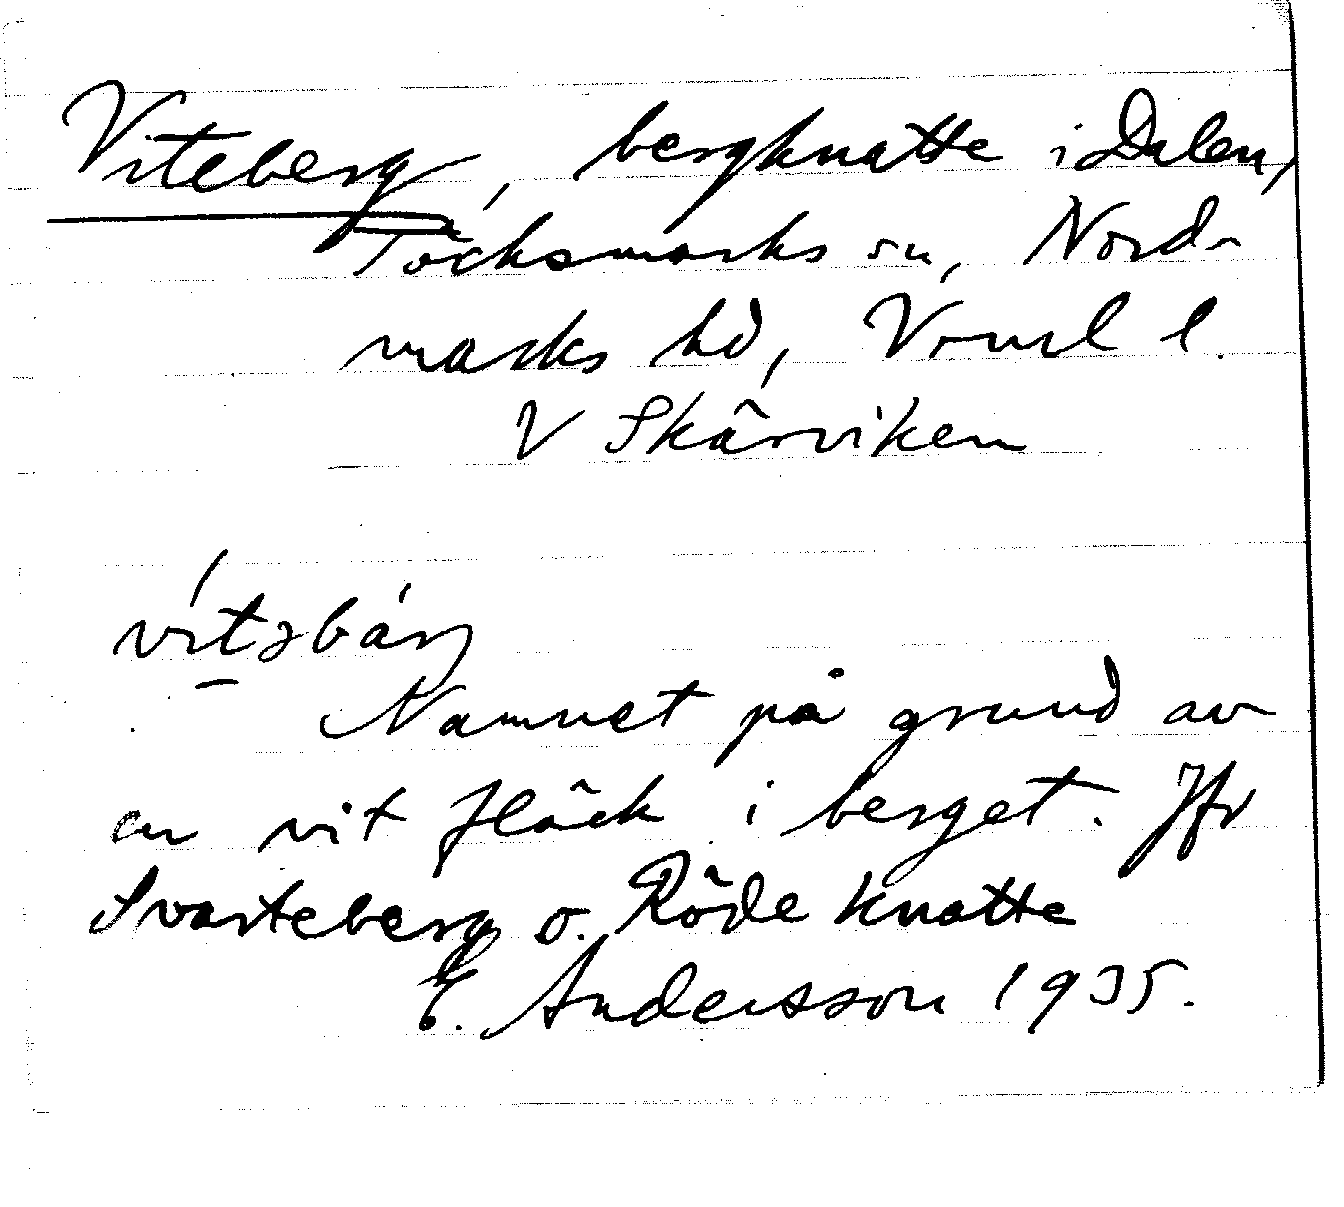 Viteberg, bergknatte i Dalen,
Töcksmarks sn, Nord-
marks hd, Vrml l.
V Skärviken
vítəbárj
Namnet på grund av
en vit fläck i berget. Jfr
Svarteberg o. Röde knatte
E. Andersson 1935.